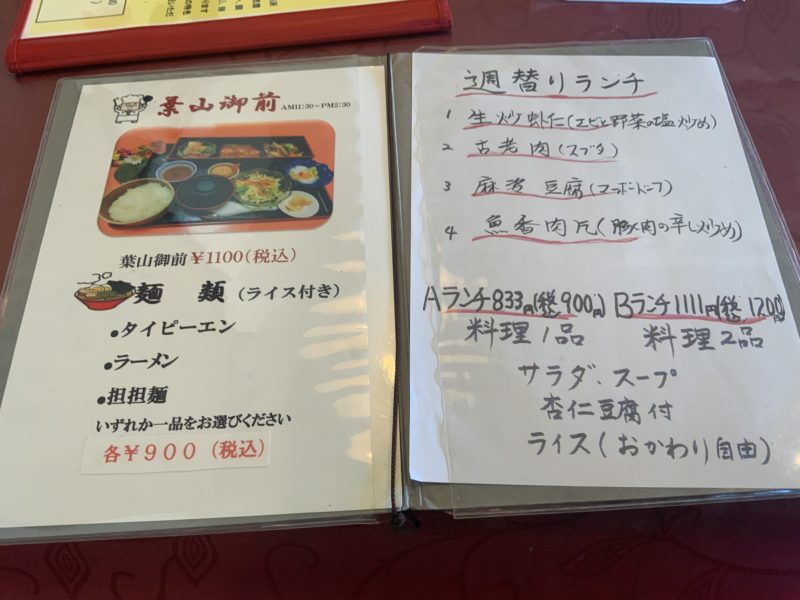 葉山御前 AM11:30~PM2:30
葉山御前¥1100(税込)
麺 類 (ライス付き)
●タイピーエン
●ラーメン
●担担麺
いずれか一品をお選びください
各¥900 (税込)
週替りランチ
1 生炒虾仁(エビと野菜の塩炒め)
2 古老肉(スブタ)
3 麻婆豆腐(マーボードーフ)
4 魚香肉片(豚肉の辛し炒め)
Aランチ833円(税込900円) Bランチ1111円(税込1200円)
料理1品 料理2品
サラダ、スープ
杏仁豆腐付
ライス(おかわり自由)